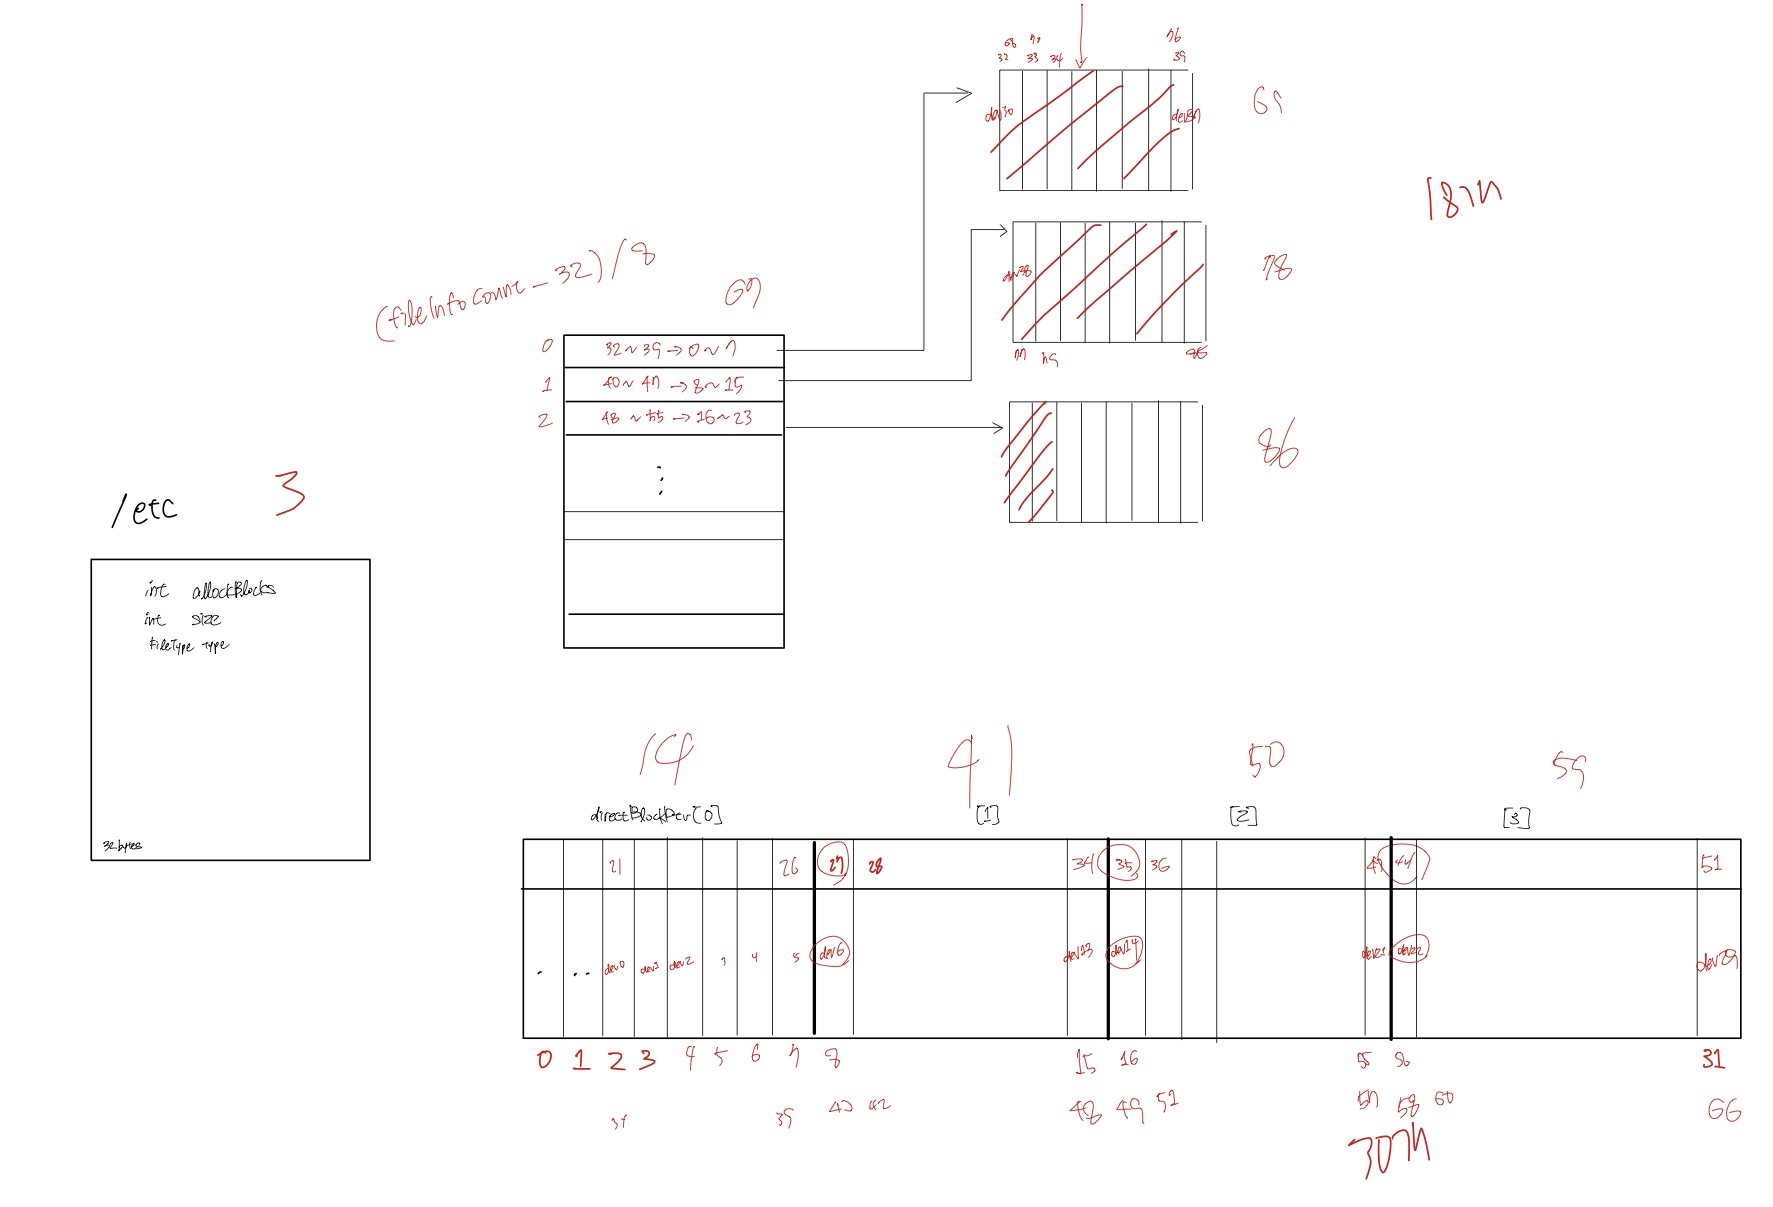 68 70 76
32 33 34 39
dev30 dev37
69
18개
(fileInfoCount - 32) / 8
78
dev38
67
77 79 85
0 32 ~ 39 → 0 ~ 7
1 40 ~ 47 → 8 ~ 15
2 48 ~ 55 → 16 ~ 23
86
/etc 3
int allockBlocks
int size
FileType type
32 bytes
14 41 50 59
directBlockPtr[0] [1] [2] [3]
21 26 27 28 34 35 36 43 44 51
. .. dev0 dev1 dev2 3 4 5 dev6 dev13 dev14 dev21 dev22 dev29
0 1 2 3 4 5 6 7 8 15 16 31
39 40 42 48 49 51 57 58 60 66
30개